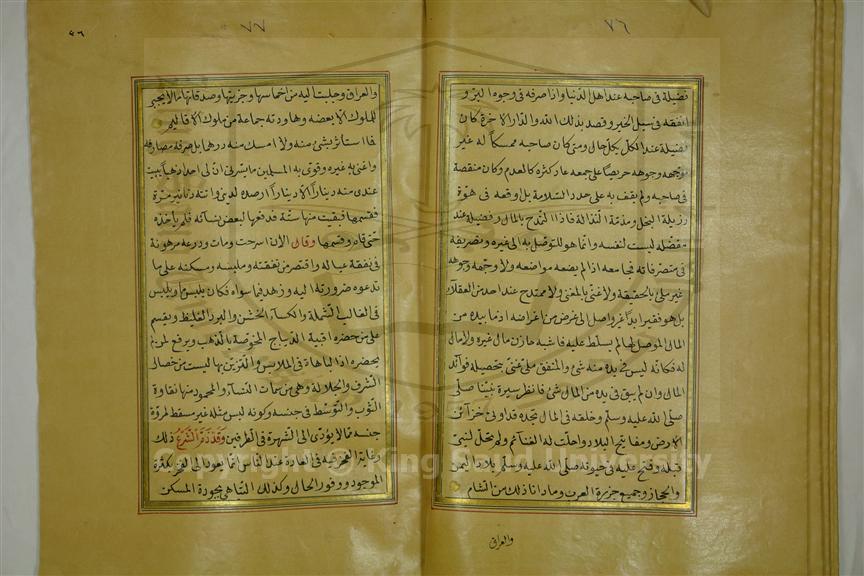 ٧٦
فضيلة فى صاحبه عند اهل الدنيا واذا صرفه فى وجوه البر و
انفقه فى سبل الخير وقصد بذلك الله والدار الاخرة كان
فضيلة عند الكل بكل حال ومتى كان صاحبه ممسكاً له غير
موجهه وجوهه حريصاً على جمعه عاد كثره كالعدم وكان منقصة
فى صاحبه ولم يقف به على جدد السلامة بل اوقعه فى هوة
رزيلة البخل ومذمة النذالة فاذا التمدح بالمال وفضيلته عند
مفضله ليست لنفسه وانما هو للتوصل به الى غيره وتصريفه
فى متصرفاته فجامعه اذا لم يضعه مواضعه ولا وجهه وجوهه
غير ملى بالحقيقة ولا غنى بالمعنى ولا ممتدح عند احد من العقلاء
بل هو فقير ابداً غير واصل الى غرض من اغراضه اذ ما بيده من
المال الموصل لها لم يسلط عليه فاشبه خازن مال غيره ولا مال
له فكانه ليس فى يده منه شئ والمنفق ملى غنى بتحصيله فوائد
المال وان لم يبق فى يده من المال شئ فانظر سيرة نبينا صلى
صلى الله عليه وسلم وخلقه فى المال تجده قد اوتى خزائن
الارض ومفاتيح البلاد واحلت له الغنائم ولم تحل لنبى
قبله وفتح عليه فى حيوته صلى الله عليه وسلم بلاد اليمن
والحجاز وجميع جزيرة العرب وما دانا ذلك من الشام
والعراق
٧٧
والعراق وجلبت اليه من اخماسها وجزيتها وصدقاتها ما لا يجبى
للملوك الا بعضه وهادته جماعة من ملوك الاقاليم
فما استأثر بشئ منه ولا امسك منه درهما بل صرفه مصارفه
واغنى به غيره وقوى به المسلمين ما يسرنى ان لى احد ذهباً يبيت
عندى منه دينار الا ديناراً ارصده لدينى واتته دنانير مرة
فقسمها فبقيت منها ستة فدفعها لبعض نسائه فلم ياخذه
حتى قام وقسمها وقال الان استرحت ومات ودرعه مرهونة
فى نفقة عياله واقتصر من نفقته وملبسه ومسكنه على ما
تدعوه ضرورته اليه وزهد فيما سواه فكان يلبس ما وجد ويلبس
فى الغالب الشملة والكساء الخشن والبرد الغليظ ويقسم
على من حضره اقبية الديباج المخوصة بالذهب ويرفع لمن لم
يحضره اذ المباهاة فى الملابس والتزين بها ليست من خصال
الشرف والجلالة وهى من سمات النساء والمحمود منها نقاوة
الثوب والتوسط فى جنسه وكونه لبس مثله غير مسقط لمروة
جنسه مما لا يؤدى الى الشهرة فى الطرفين وقد ذم الشرع ذلك
وغاية الفخر فيه فى العادة عند الناس انما يعود الى الفخر بكثرة
الموجود ووفور الحال وكذلك التباهى بجودة المسكن
Copyright © King Saud University